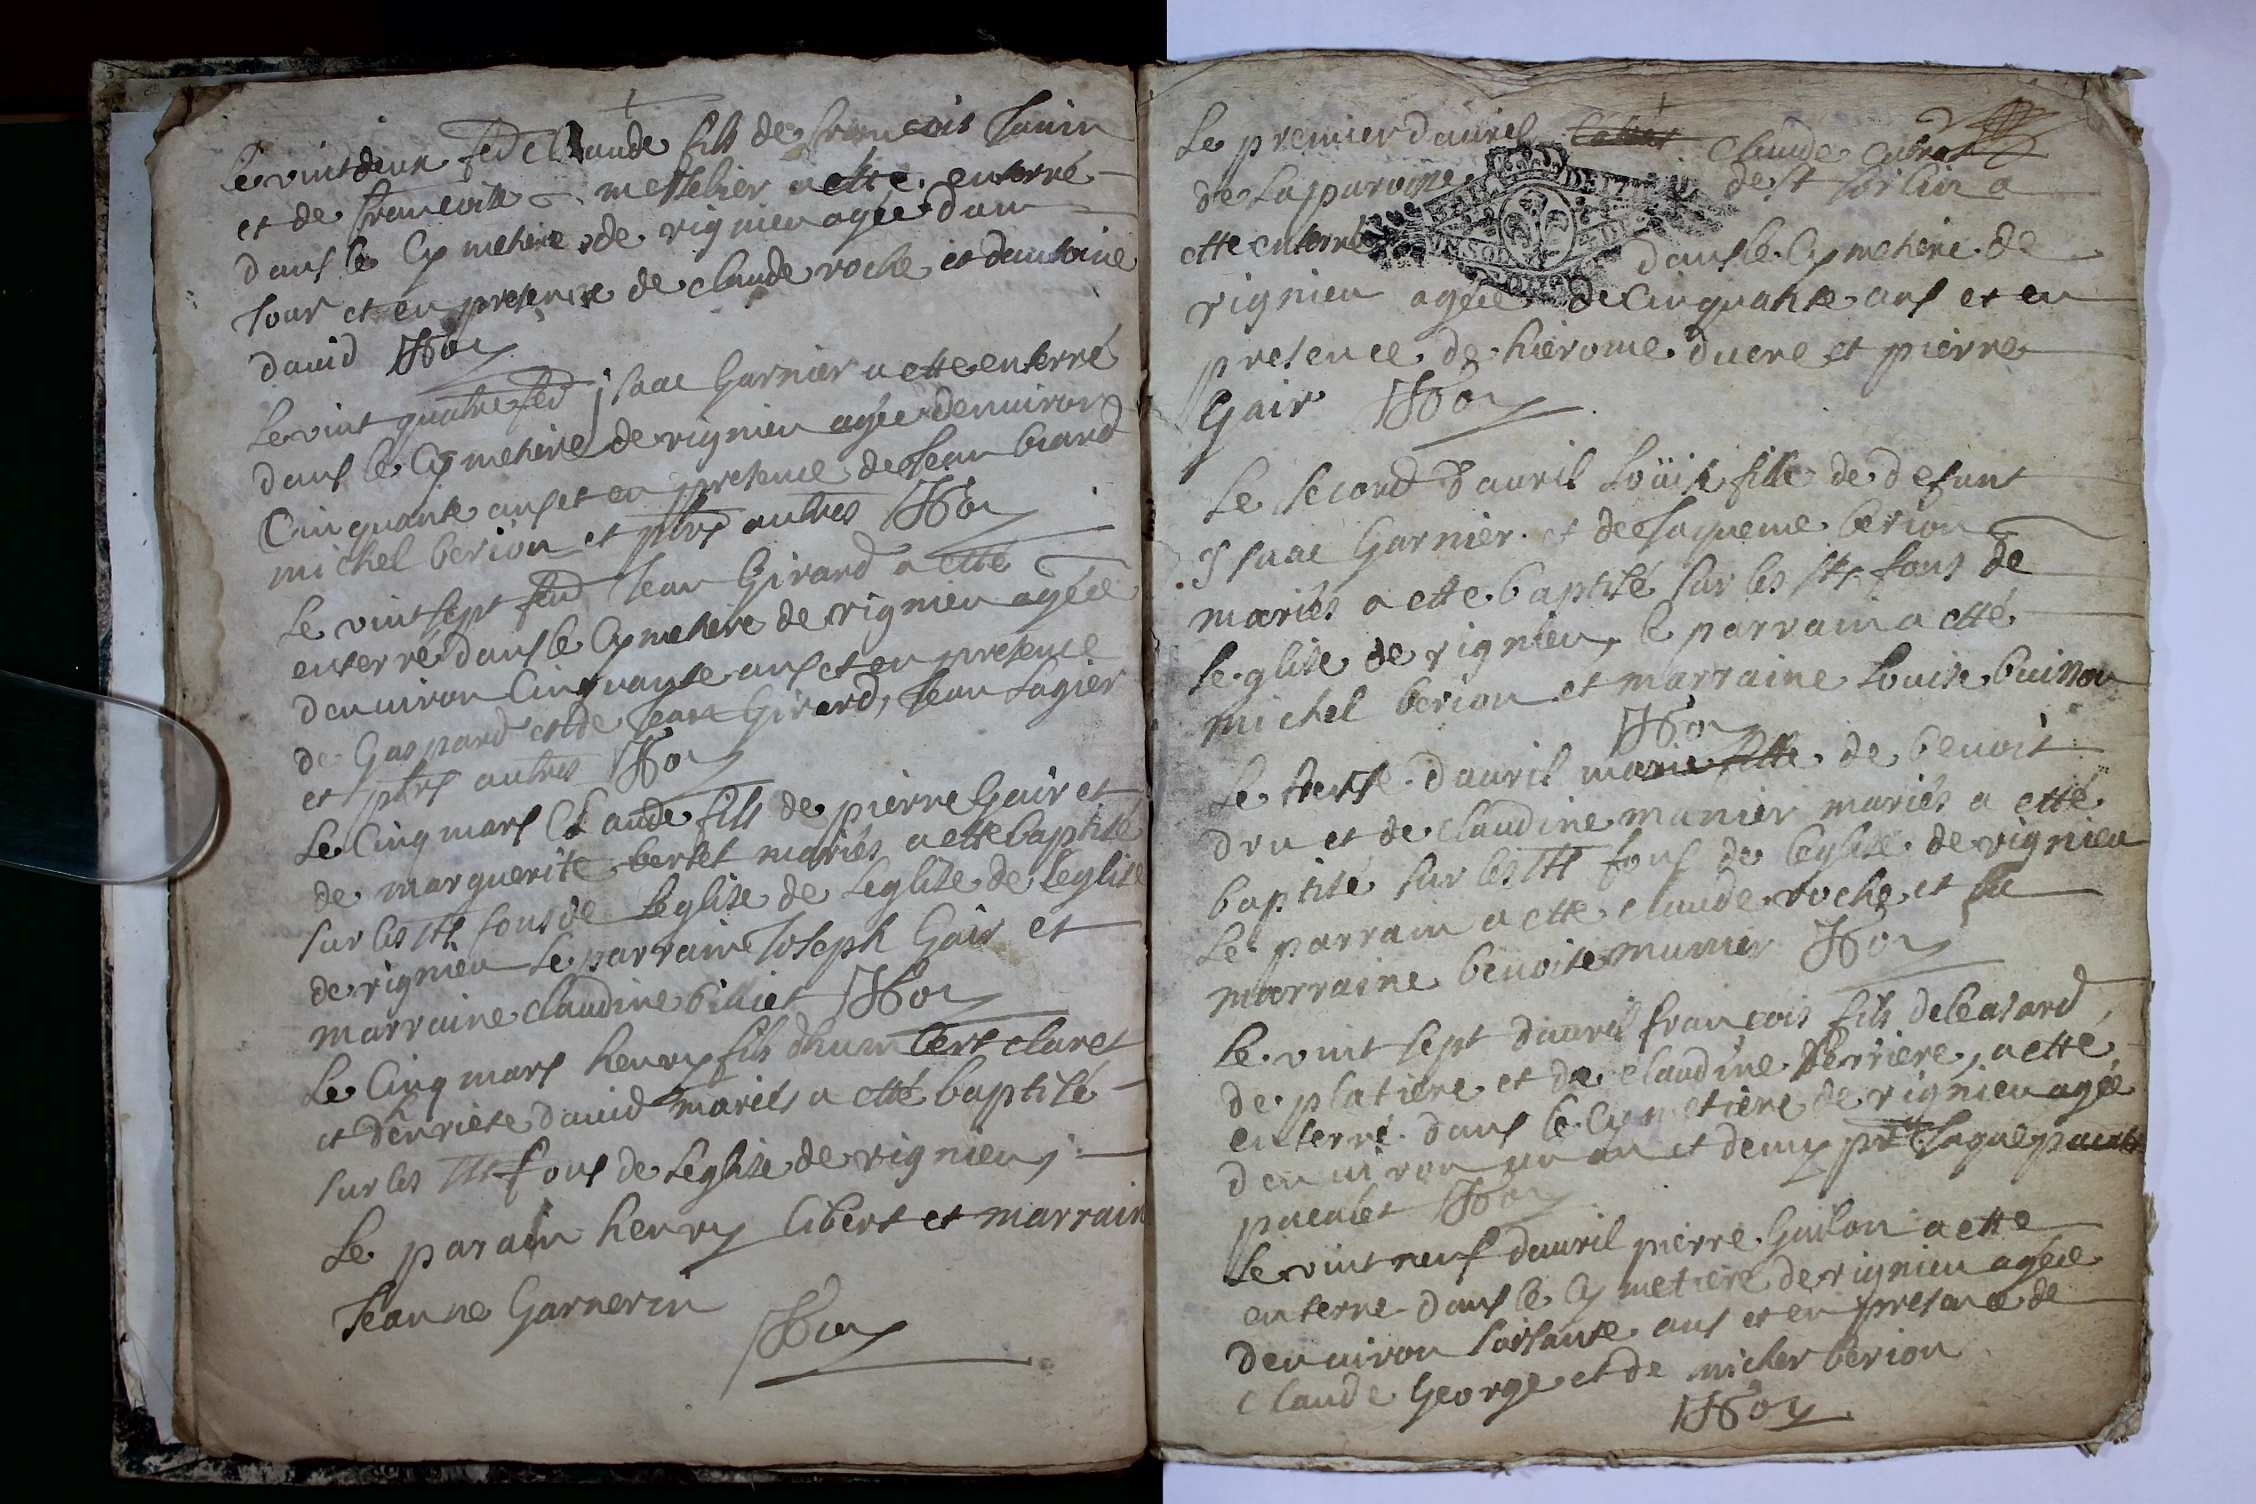 Le vint deux fed Claude fils de francois Janin
et de francoise messelier a etté enterré
dans le Cymetiere de rignieu agée dun
Jour et en presence de claude roche et dantoine
david
Le vint quatre fed isaac Garnier a etté enterré
dans le Cymetiere de rignieu agée denuiron
Cinquante ans et en presence de Jean biard
michel berion et plrs autres
Le vint sept fed Jean Girard a etté
enterré dans le Cymetiere de rignieu agée
denuiron Cinquante ans et en presence
de Gaspard et de Jean Girard, Jean Lagier
et plrs autres
Le Cinq mars Claude fils de pierre Gair et
de marguerite bertet mariés a etté baptisé
sur les sts fons de Leglise de Leglise de Leglise
de rignieu Le parrain Joseph Gair et
marraine claudine billiet
Le Cinq mars henry fils dhumbert claret
et denriete david mariés a etté baptisé
sur les sts fons de Leglise de rignieu,
Le parain henry libert et marrain
Jeanne Garnerin
Le premier dauril Claude cabrat
de La paroisse de st sorlin a
etté enterré dans le Cymetiere de
rignieu agée de Cinquante ans et en
presence de hierome ducre et pierre
Gair
Le second dauril Loüise fille de defunt
Isaac Garnier et de Jaqueme berion
mariés a etté baptisé sur les sts fons de
Leglise de rignieu, le parrain a etté
michel berion et marraine Louise buisson
Le treise dauril marie fille de benoit
dru et de claudine munier mariés a etté
baptisé sur les sts fons de leglise de rignieu
Le parrain a etté claude roche et la
marraine benoite munier
Le vint sept dauril francois fils de leasard
de platiere et de claudine ferriere, a etté
enterré dans le Cymetiere de rignieu agée
denuiron un an et demy pnt Jaque
pacalet
Le vint neuf dauril pierre Guilon a etté
enterré dans le Cymetiere de rignieu agée
denuiron soisante ans et en presence de
claude George et de michel berion